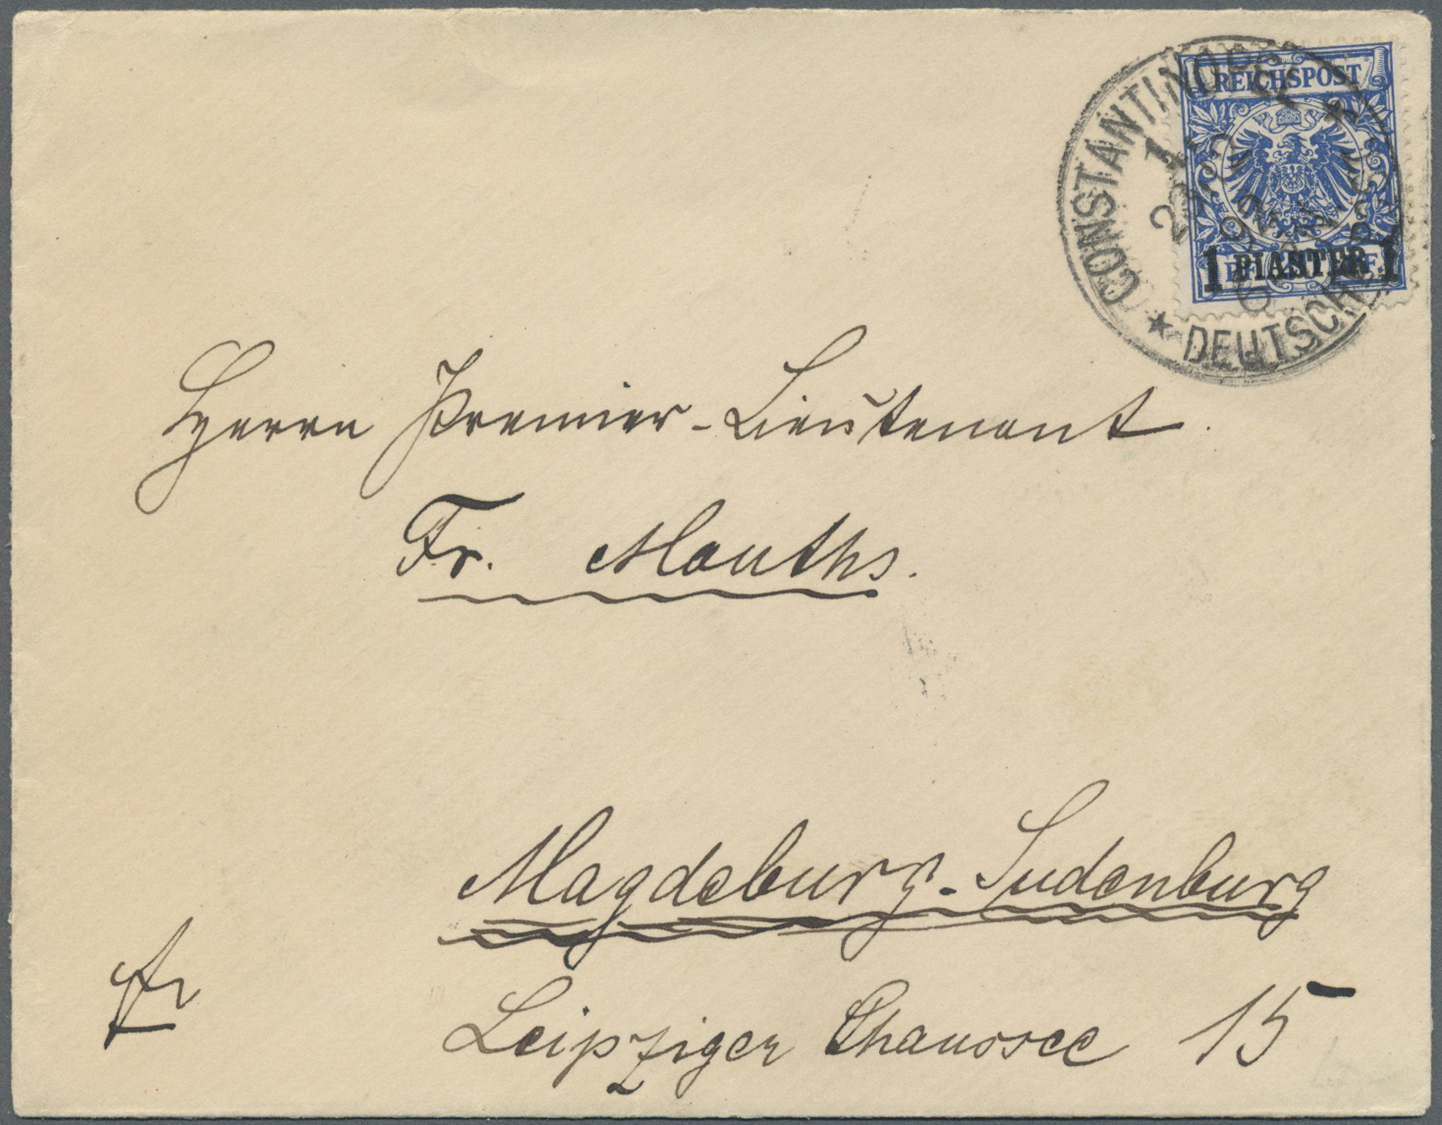 REICHSPOST
1 PIASTER 1
CONSTANTINOPEL 1
DEUTSCHE
Herrn Premier-Lieutenant
Fr. Mauths.
Magdeburg-Sudenburg
Leipziger Chaussee 15
fr